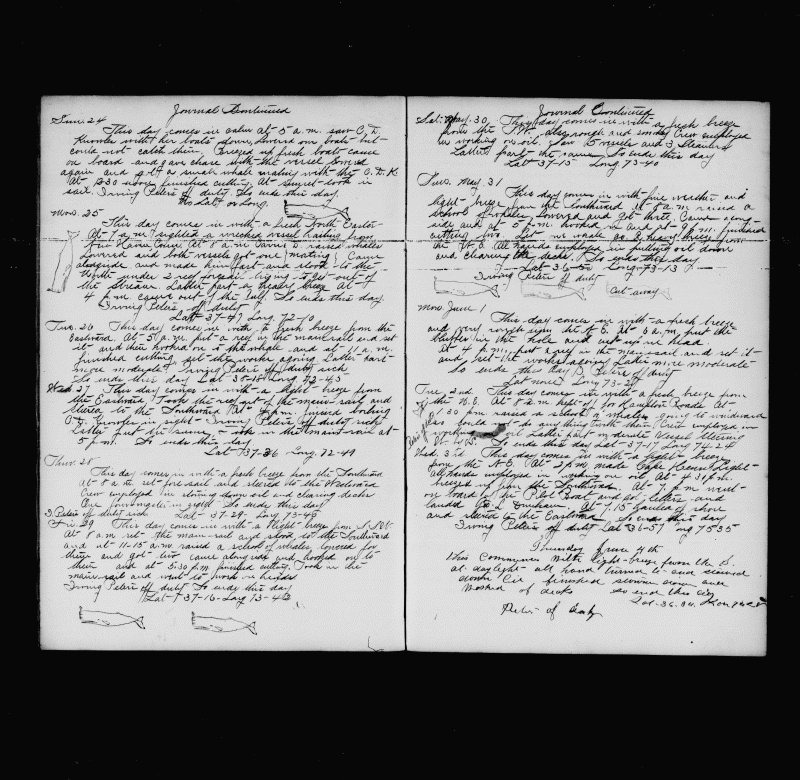 Journal Continued
Sun. 24
This day comes in calm at 5 a.m. saw C. D.
Knowles with her boats down, lowered our boats but
could not catch them. Breezed up fresh boats came
on board and gave chase with the vessel lowered
again and got a small whale mating with the C. D. K
At 12:30 noon finished cutting. At sunset took in
sail. Irving Peters off duty. So ends this day
No Lat or Long
Mon. 25
This day comes in with a fresh North Easter
At 7 a.m. sighted a wrecked vessel
At 8 a.m. raised whales
Lowered and both vessels got one mating Came
alongside and made him fast and stood to the
North under 2 reef foresail trying to get out of
the Stream. Latter part a heavy breeze At
4 p.m. came out of the Gulf. So ends this day
Irving Peters off duty
Lat 37-47 Long 72-10
Tue. 26 This day comes in with a fresh breeze from the
Eastward. At 5 a.m. put a reef in the mainsail and set
it and then hooked on to the whale and at 11 a.m.
finished cutting, set the works agoing Latter part
more moderate Irving Peters off duty sick
So ends this day Lat 38-18 Long 72-45
Wed 27 This day comes in with a light breeze from
the Eastward Took the reef out of the mainsail and
steered to the Southward At 4 p.m. finished boiling
C. D. Knowles in sight Irving Peters off duty sick
took in the mainsail at
5 p.m. So ends this day
Lat 37-36 Long. 72-49
Thur. 28
This day comes in with a fresh breeze from the Southward
At 8 a.m. set foresail and steered to the Westward
Crew employed in stowing down oil and clearing decks
So ends this day
I. Peters off duty sick Lat 37-29 Long 73-45
Fri. 29 This day comes in with a light breeze from
At 8 a.m. set the mainsail and stood to the Southward
and at 11-15 a.m. raised a school of whales lowered for
them and got two came alongside and hooked on to
them and at 5:30 p.m. finished cutting. Took in the
mainsail and went to work on heads
Irving Peters off duty So ends this day
Lat 37-16 Long 73-43
Journal Continued
Sat. May. 30, This day comes in with a fresh breeze
from the S.W. also rough and smoky Crew employed
in working on oil. Saw 5 vessels and 3 Steamers
Latter part the same. So ends this day
Lat 37-15 Long 73-40
Sun. May. 31
This day comes in with fine weather and
light breeze from the Southward At 8 a.m. raised a
school of whales, Lowered and got three Came along
side and at 5 p.m. hooked in and at 9 p.m. finished
cutting two.
the N.E. All hands employed in putting oil down
and clearing the decks. So ends this day
Lat 36-50 Long 73-13
Irving Peters off duty
Cut away
Mon. June 1
This day comes in with a fresh breeze
and very rough from the N.E. At 6 a.m. put the
blubber in the hole and cut up in head.
At 4 p.m. put a reef in the mainsail and set it
and set the works agoing Latter more moderate
So ends this day P. Peters off duty
Lat none Long 73-27
Tue. 2nd. This day comes in with a fresh breeze from
the N.E. At 8 a.m. kept off for Hampton Roads. At
1:30 p.m. raised a school of whales going to windward
could not do any thing with them Crew employed in
working oil Latter part moderate Vessel steering
So ends this day Lat 37-17 Long 74-24
Wed. 3rd This day comes in with a light breeze
from the N.E. At 2 p.m. made Cape Henry Light
All hands employed in working on oil At 4:30 p.m.
breezed up from the Southward. At 7 p.m. went
on board of the Pilot Boat and got letters and
landed Capt. Dunham At 7.15 hauled off shore
and steered to the Eastward. So ends this day
Irving Peters off duty Lat 36-57 Long 75 35
Thursday June 4th
this Commence With light breeze from the S.
at daylight all hand turned to and cleared
down Oil finished stowing down and
Washed of decks so end this day
Lat. 36.34.
Peters of duty